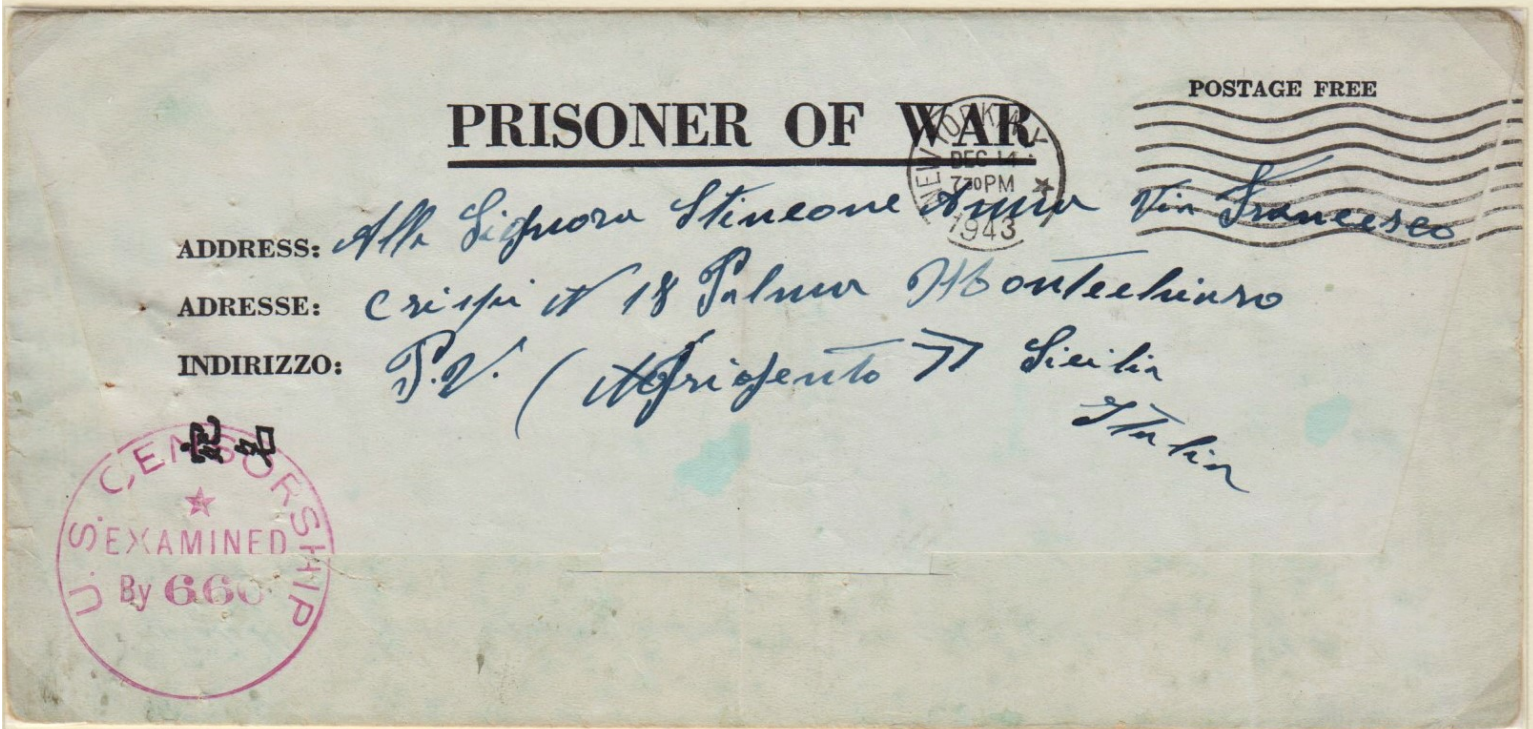 POSTAGE FREE
PRISONER OF WAR
NEW YORK, N.Y.
DEC 14
730PM
1943
ADDRESS: Alla Signora Stincone Anna Via Francesco
ADRESSE: Crispi N 18 Palma Montechiaro
INDIRIZZO: P.V. (Agrigento) Sicilia
Italia
U.S. CENSORSHIP
EXAMINED
By 660